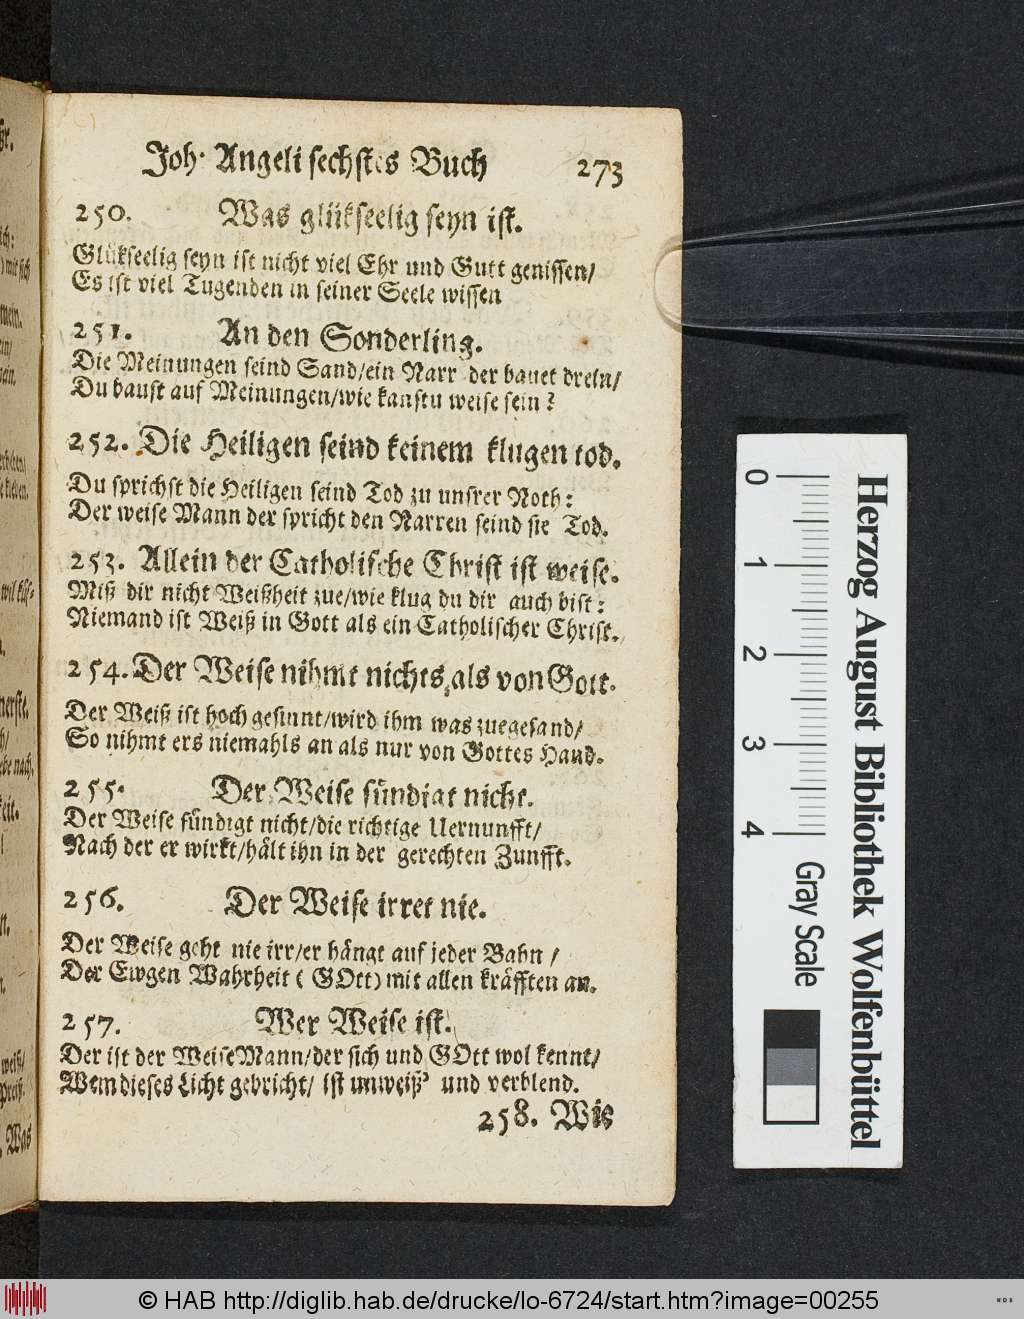 Joh. Angeli sechstes Buch 273
250. Was glükseelig seyn ist.
Glükseelig seyn ist nicht viel Ehr und Gutt genissen/
Es ist viel Tugenden in seiner Seele wissen
251. An den Sonderling.
Die Meinungen seind Sand/ein Narr der bauet drein/
Du baust auf Meinungen/wie kanstu weise sein?
252. Die Heiligen seind keinem klugen tod.
Du sprichst die Heiligen seind Tod zu unsrer Noth:
Der weise Mann der spricht den Narren seind sie Tod.
253. Allein der Catholische Christ ist weise.
Miß dir nicht Weißheit zue/wie klug du dir auch bist:
Niemand ist Weiß in Gott als ein Catholischer Christ.
254. Der Weise nihmt nichts, als von Gott.
Der Weiß ist hoch gesinnt/wird ihm was zuegesand/
So nihmt ers niemahls an als nur von Gottes Hand.
255. Der Weise sündigt nicht.
Der Weise sündigt nicht/die richtige Vernunfft/
Nach der er wirkt/hält ihn in der gerechten Zunfft.
256. Der Weise irret nie.
Der Weise geht nie irr/er hängt auf jeder Bahn /
Der Ewgen Wahrheit (GOtt) mit allen kräfften an.
257. Wer Weise ist.
Der ist der Weise Mann/der sich und GOtt wol kennt/
Wem dieses Licht gebricht/ ist unweiß' und verblend.
258. Wie
Herzog August Bibliothek Wolfenbüttel
0 1 2 3 4
Gray Scale
© HAB http://diglib.hab.de/drucke/lo-6724/start.htm?image=00255